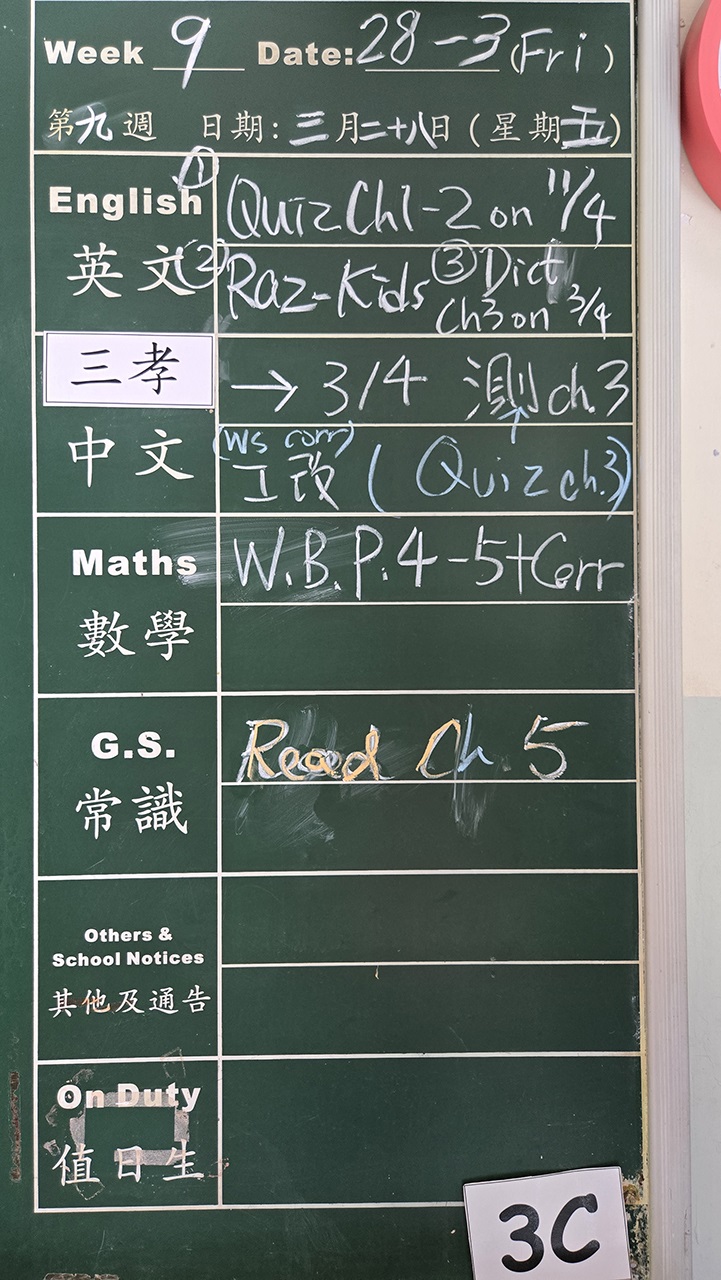 Week 9 Date: 28-3 (Fri)
第九週 日期: 三月二十八日 (星期五)
English ① Quiz Ch1-2 on 11/4
英文 ② Raz-Kids ③ Dict
Ch3 on 3/4
三孝 → 3/4 測 ch.3
↑
(ws corr)
中文 工改 (Quiz ch.3)
Maths W.B.P.4-5+Corr
數學
G.S. Read Ch.5
常識
Others &
School Notices
其他及通告
On Duty
值日生
3C